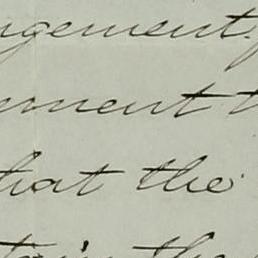 ngement,
ement t
hat the
tain the